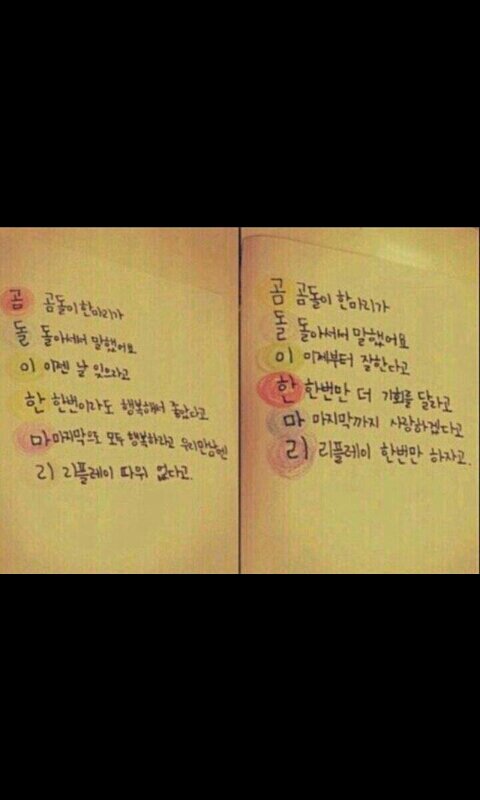 곰 곰돌이 한마리가
돌 돌아서서 말했어요
이 이젠 날 잊으라고
한 한번이라도 행복해서 좋았다고
마 마지막으로 모두 행복하라고 우리만남엔
리 리플레이 따위 없다고.
곰 곰돌이 한마리가
돌 돌아서서 말했어요
이 이제부터 잘한다고
한 한번만 더 기회를 달라고
마 마지막까지 사랑하겠다고
리 리플레이 한번만 하자고.